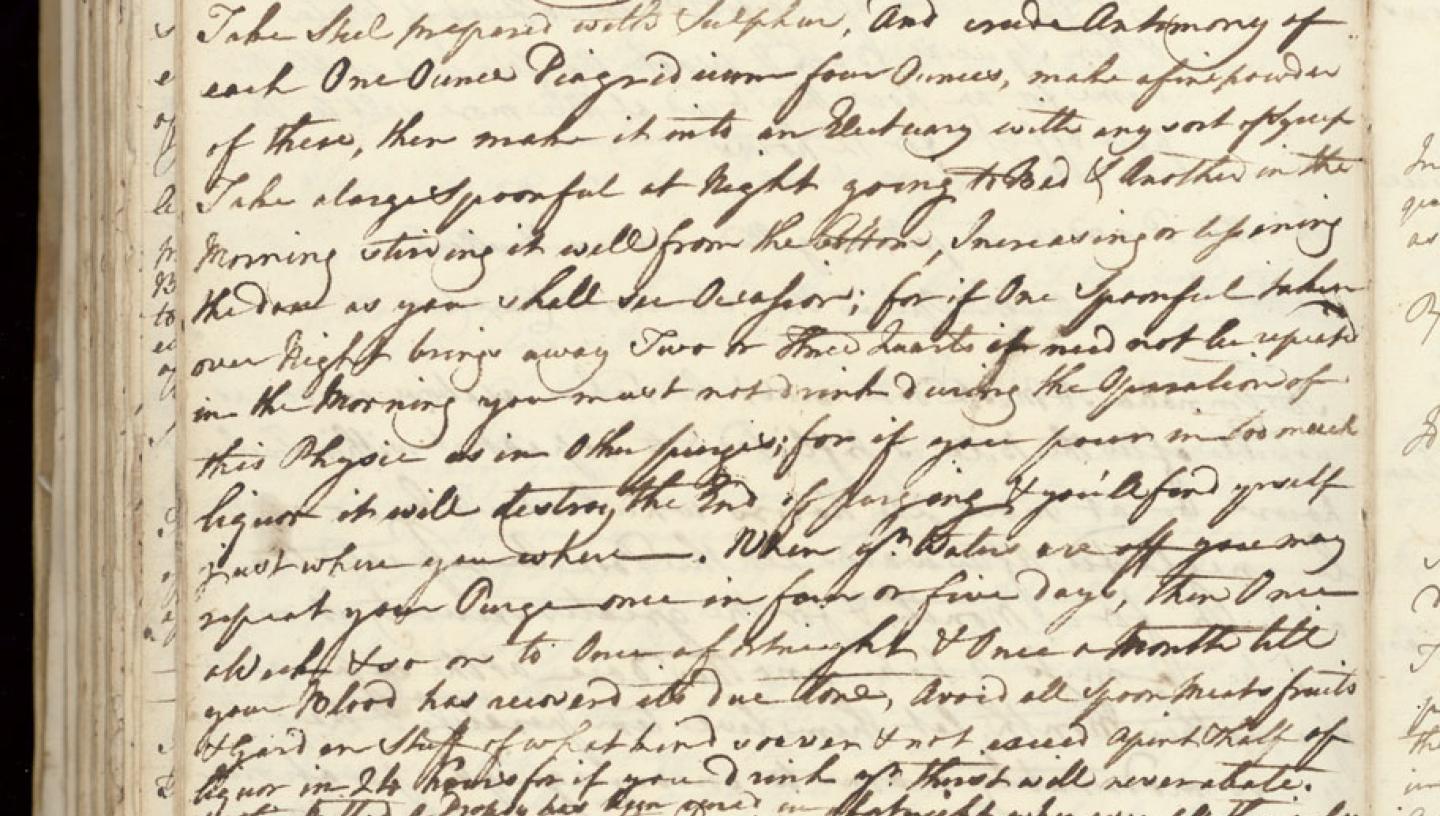 Take Steel prepared with Sulphur, And crude Antimony of
each One Ounce Diagridium four Ounces, make a fine powder
of these, then make it into an Electuary with any sort of Syrup
Take a large Spoonful at Night going to Bed & Another in the
Morning stirring it well from the bottom, Increasing or lessening
the dose as you shall see Occasion; for if One Spoonful taken
over Night brings away Two or three Quarts it need not be repeated
in the Morning you must not drink during the Operation of
this Physic as in Other purges; for if you pour in too much
liquor it will destroy the End of purging & you'll find yrself
just where you where. When yr. Waters are off you may
repeat your Purge once in four or five days, then Once
a Week & so on to Once a fortnight & Once a Month till
your Blood has recoverd its due tone, Avoid all spoon Meats fruits
& Garden Stuff of what kind soever & not exceed a pint & half of
liquor in 24 hours for if you drink yr. thirst will never abate.
Dropsy has been cured in a fortnight